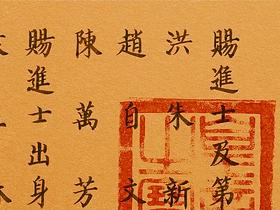 賜進士及第
洪朱新
趙自文
陳萬芳
賜進士出身